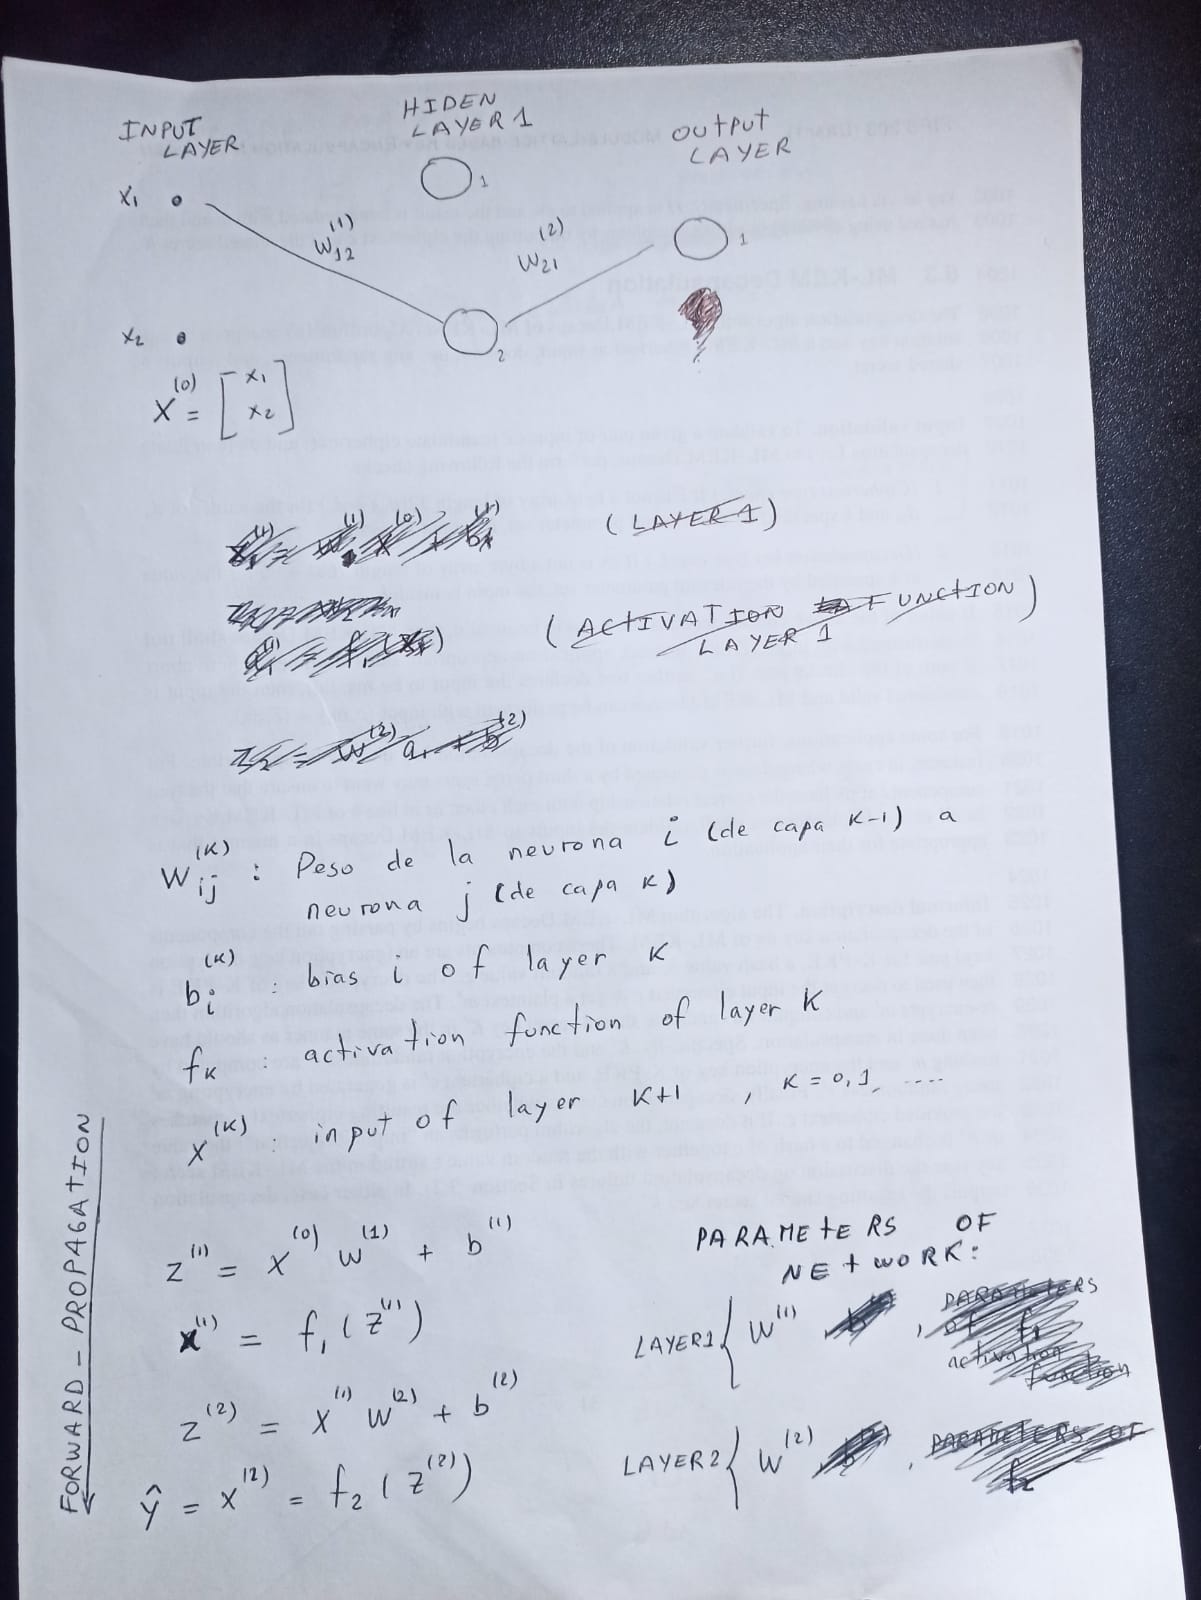 INPUT LAYER
HIDEN LAYER 1
OUTPUT LAYER
x₁
1
W₁₂⁽¹⁾
W₂₁⁽²⁾
1
x₂
2
X⁽⁰⁾ = [x₁
x₂]
(LAYER 1)
(ACTIVATION FUNCTION)
LAYER 1
W_ij^(K) : Peso de la neurona i (de capa K-1) a
neurona j (de capa K)
b_i^(K) : bias i of layer K
f_K : activation function of layer K
X^(K) : input of layer K+1 , K = 0,1, ....
FORWARD - PROPAGATION
z⁽¹⁾ = X⁽⁰⁾ W⁽¹⁾ + b⁽¹⁾
X⁽¹⁾ = f₁(z⁽¹⁾)
z⁽²⁾ = X⁽¹⁾ W⁽²⁾ + b⁽²⁾
ŷ = X⁽²⁾ = f₂(z⁽²⁾)
PARAMETERS OF
NETWORK:
LAYER1 { W⁽¹⁾ , PARAMETERS
of f₁
activation
function
LAYER2 { W⁽²⁾ , PARAMETERS OF
f₂